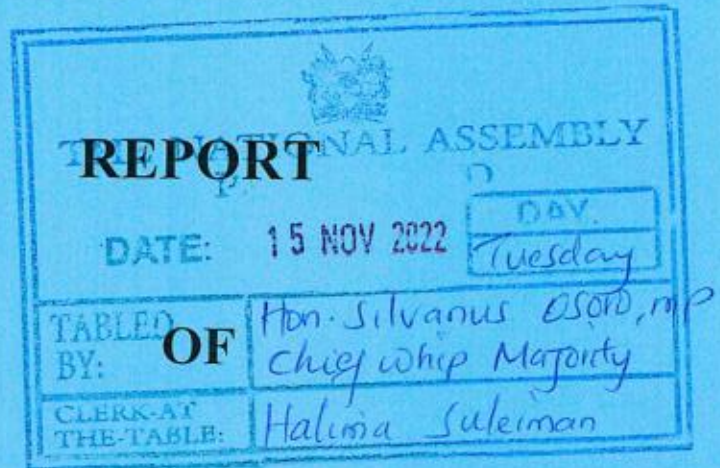 THE NATIONAL ASSEMBLY
REPORT
DATE: 15 NOV 2022
DAY.
Tuesday
TABLED BY:
Hon. Silvanus Osoro, mp
Chief Whip Majority
OF
CLERK-AT THE-TABLE:
Halima Suleiman